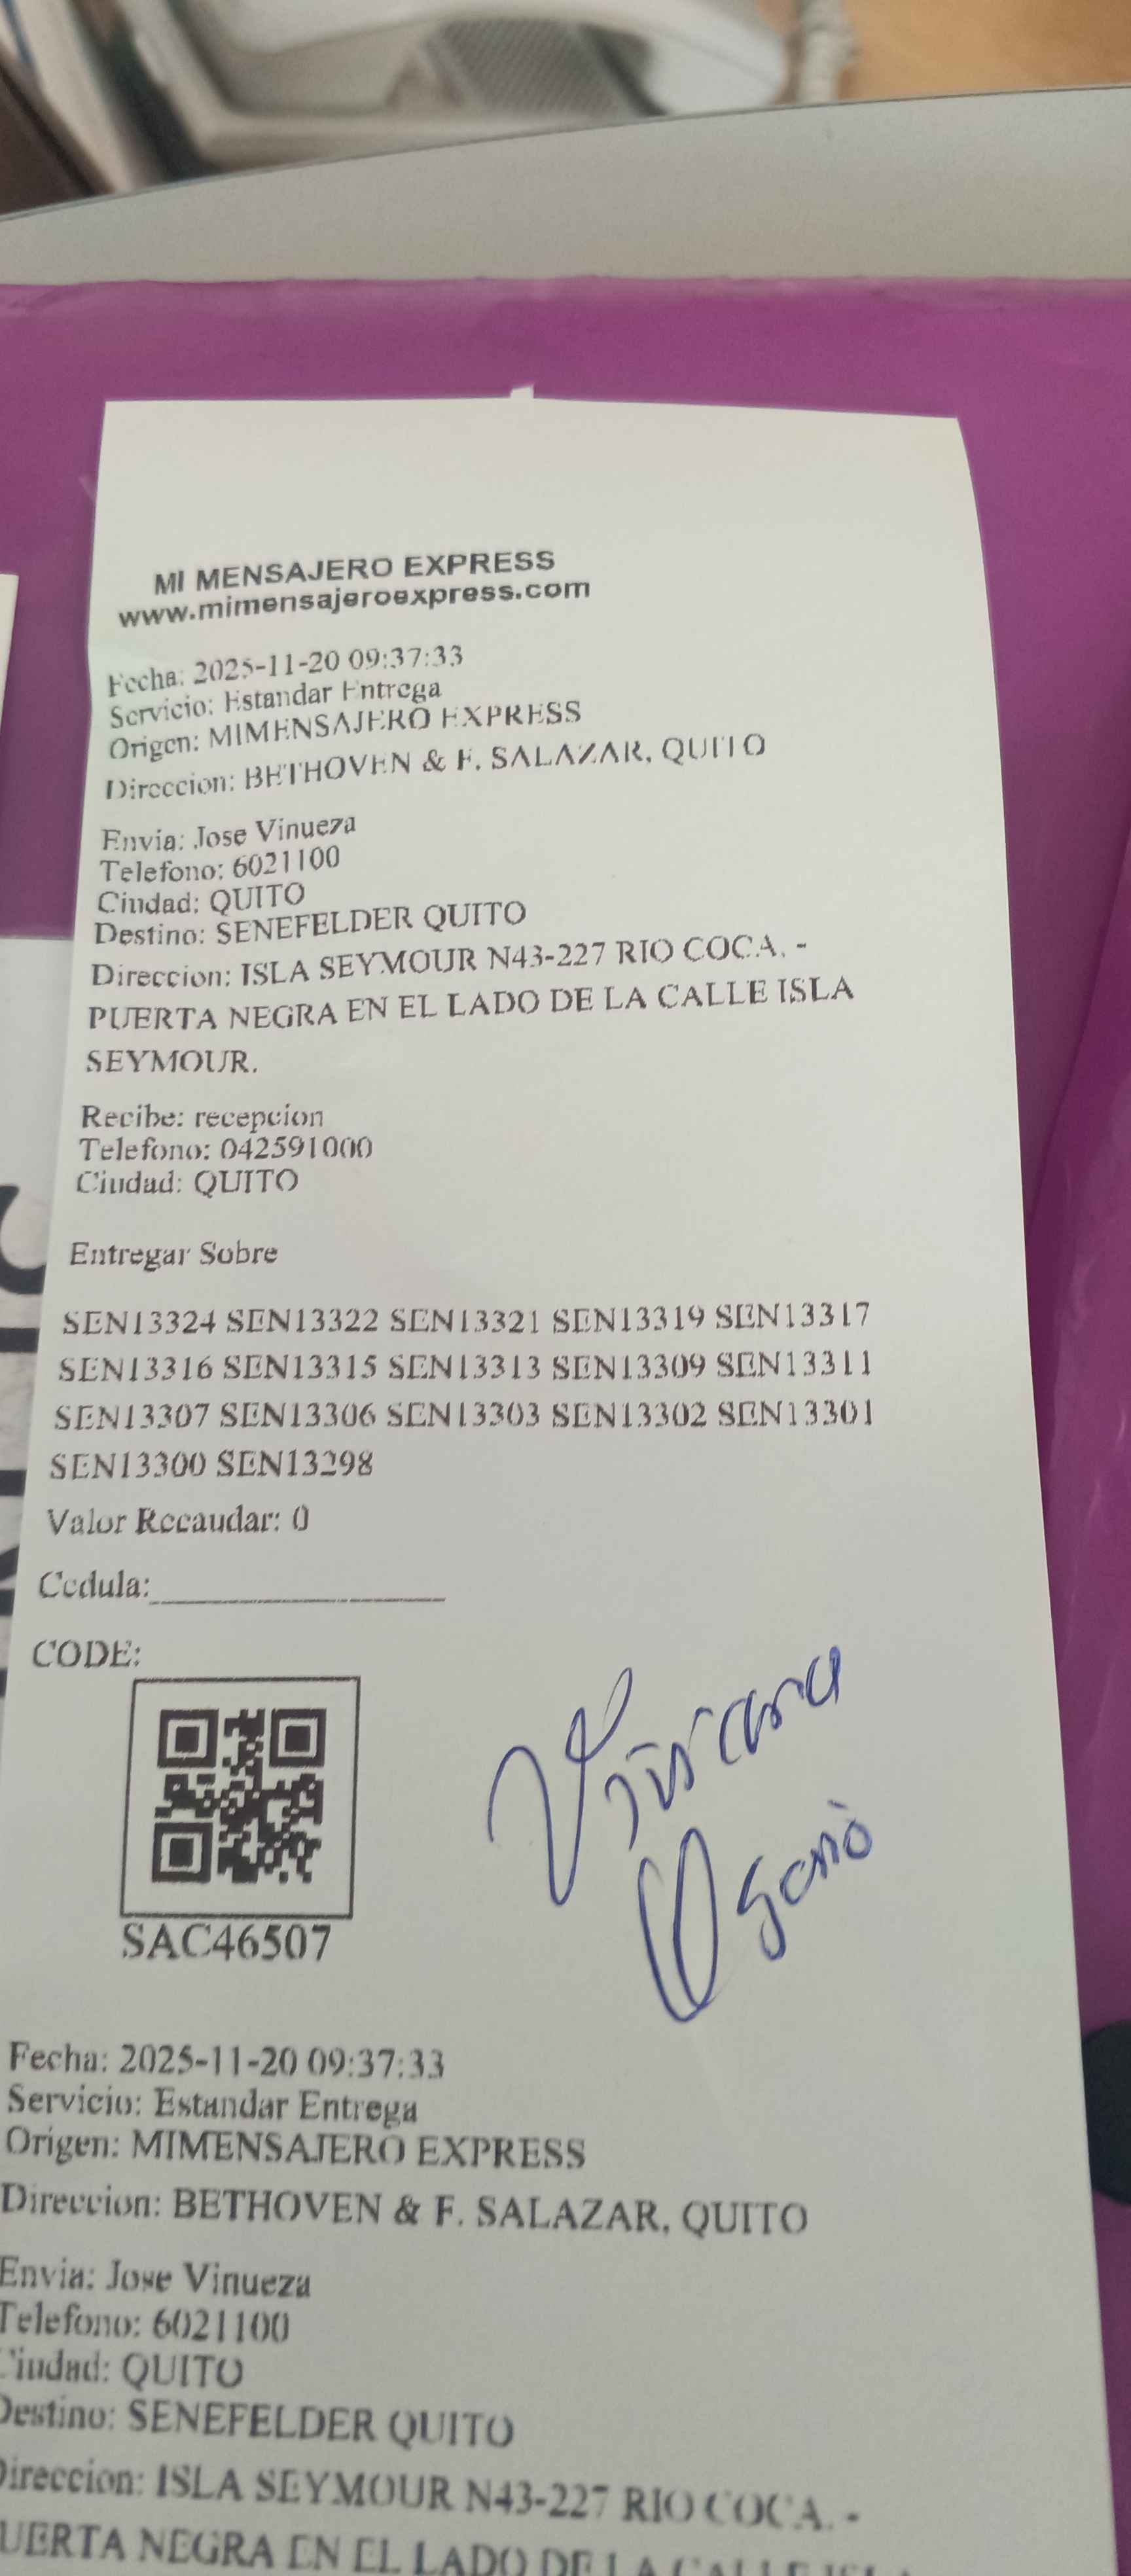 MI MENSAJERO EXPRESS
www.mimensajeroexpress.com
Fecha: 2025-11-20 09:37:33
Servicio: Estandar Entrega
Origen: MIMENSAJERO EXPRESS
Direccion: BETHOVEN & F. SALAZAR, QUITO
Envia: Jose Vinueza
Telefono: 6021100
Ciudad: QUITO
Destino: SENEFELDER QUITO
Direccion: ISLA SEYMOUR N43-227 RIO COCA. -
PUERTA NEGRA EN EL LADO DE LA CALLE ISLA
SEYMOUR.
Recibe: recepcion
Telefono: 042591000
Ciudad: QUITO
Entregar Sobre
SEN13324 SEN13322 SEN13321 SEN13319 SEN13317
SEN13316 SEN13315 SEN13313 SEN13309 SEN13311
SEN13307 SEN13306 SEN13303 SEN13302 SEN13301
SEN13300 SEN13298
Valor Recaudar: 0
Cedula:
CODE:
Viviana
SAC46507
Fecha: 2025-11-20 09:37:33
Servicio: Estandar Entrega
Origen: MIMENSAJERO EXPRESS
Direccion: BETHOVEN & F. SALAZAR, QUITO
Envia: Jose Vinueza
Telefono: 6021100
Ciudad: QUITO
Destino: SENEFELDER QUITO
Direccion: ISLA SEYMOUR N43-227 RIO COCA. -
PUERTA NEGRA EN EL LADO DE LA CALLE ISLA